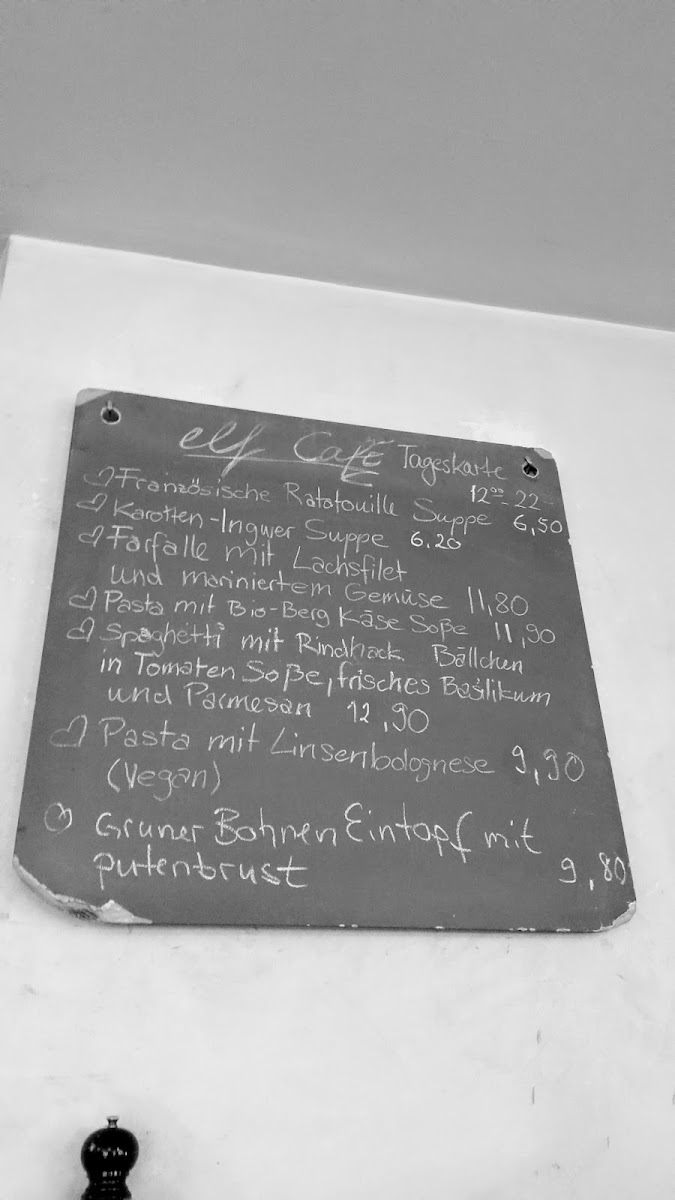 elf Café Tageskarte
12⁰⁰-22
Französische Ratatouille Suppe 6,50
Karotten-Ingwer Suppe 6.20
Farfalle mit Lachsfilet
und mariniertem Gemüse 11,80
Pasta mit Bio-Berg Käse Soße 11,90
Spaghetti mit Rindhack Bällchen
in Tomaten Soße, frisches Basilikum
und Parmesan 12,90
Pasta mit Linsenbolognese 9,90
(Vegan)
Grüner Bohnen Eintopf mit
putenbrust 9,80